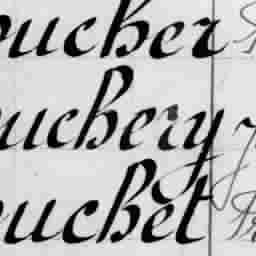 oucher
ouchery
ouchet